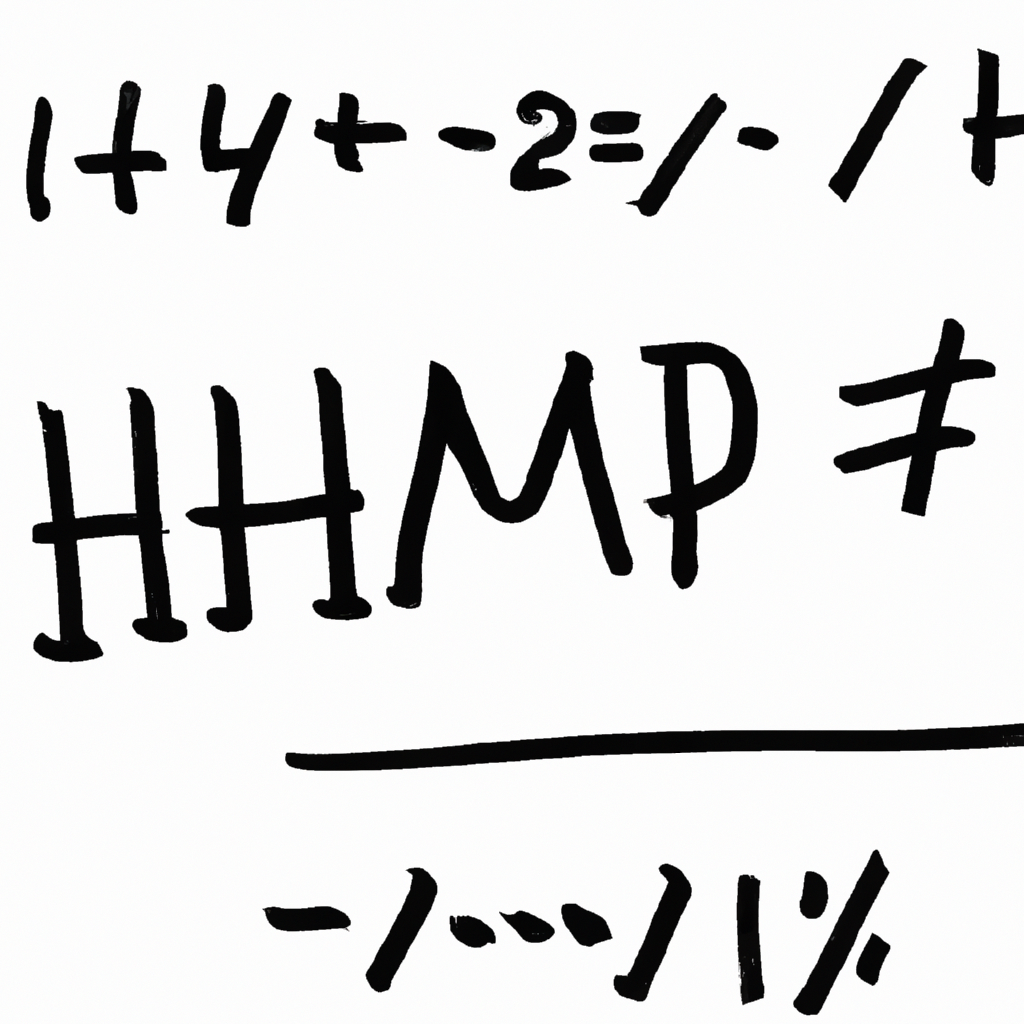 1+4+-2=/- / +
HHMP ≠
-/.../ | %